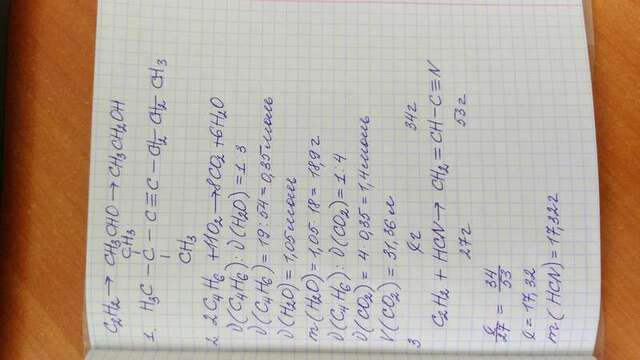 C₂H₂ → CH₃CHO → CH₃CH₂OH
CH₃
1. H₃C – C – C ≡ C – CH₂ – CH₂ – CH₃
CH₃
2. 2C₄H₆ + 11O₂ → 8CO₂ + 6H₂O
ν(C₄H₆) : ν(H₂O) = 1:3
ν(C₄H₆) = 19 : 54 = 0,35 моль
ν(H₂O) = 1,05 моль
m(H₂O) = 1,05 · 18 = 18,9 г
ν(C₄H₆) : ν(CO₂) = 1:4
ν(CO₂) = 4 · 0,35 = 1,4 моль
V(CO₂) = 31,36 л
3 xг 34г
C₂H₂ + HCN → CH₂ = CH – C ≡ N
27г 53г
x/27 = 34/53
x = 17,32
m(HCN) = 17,32г